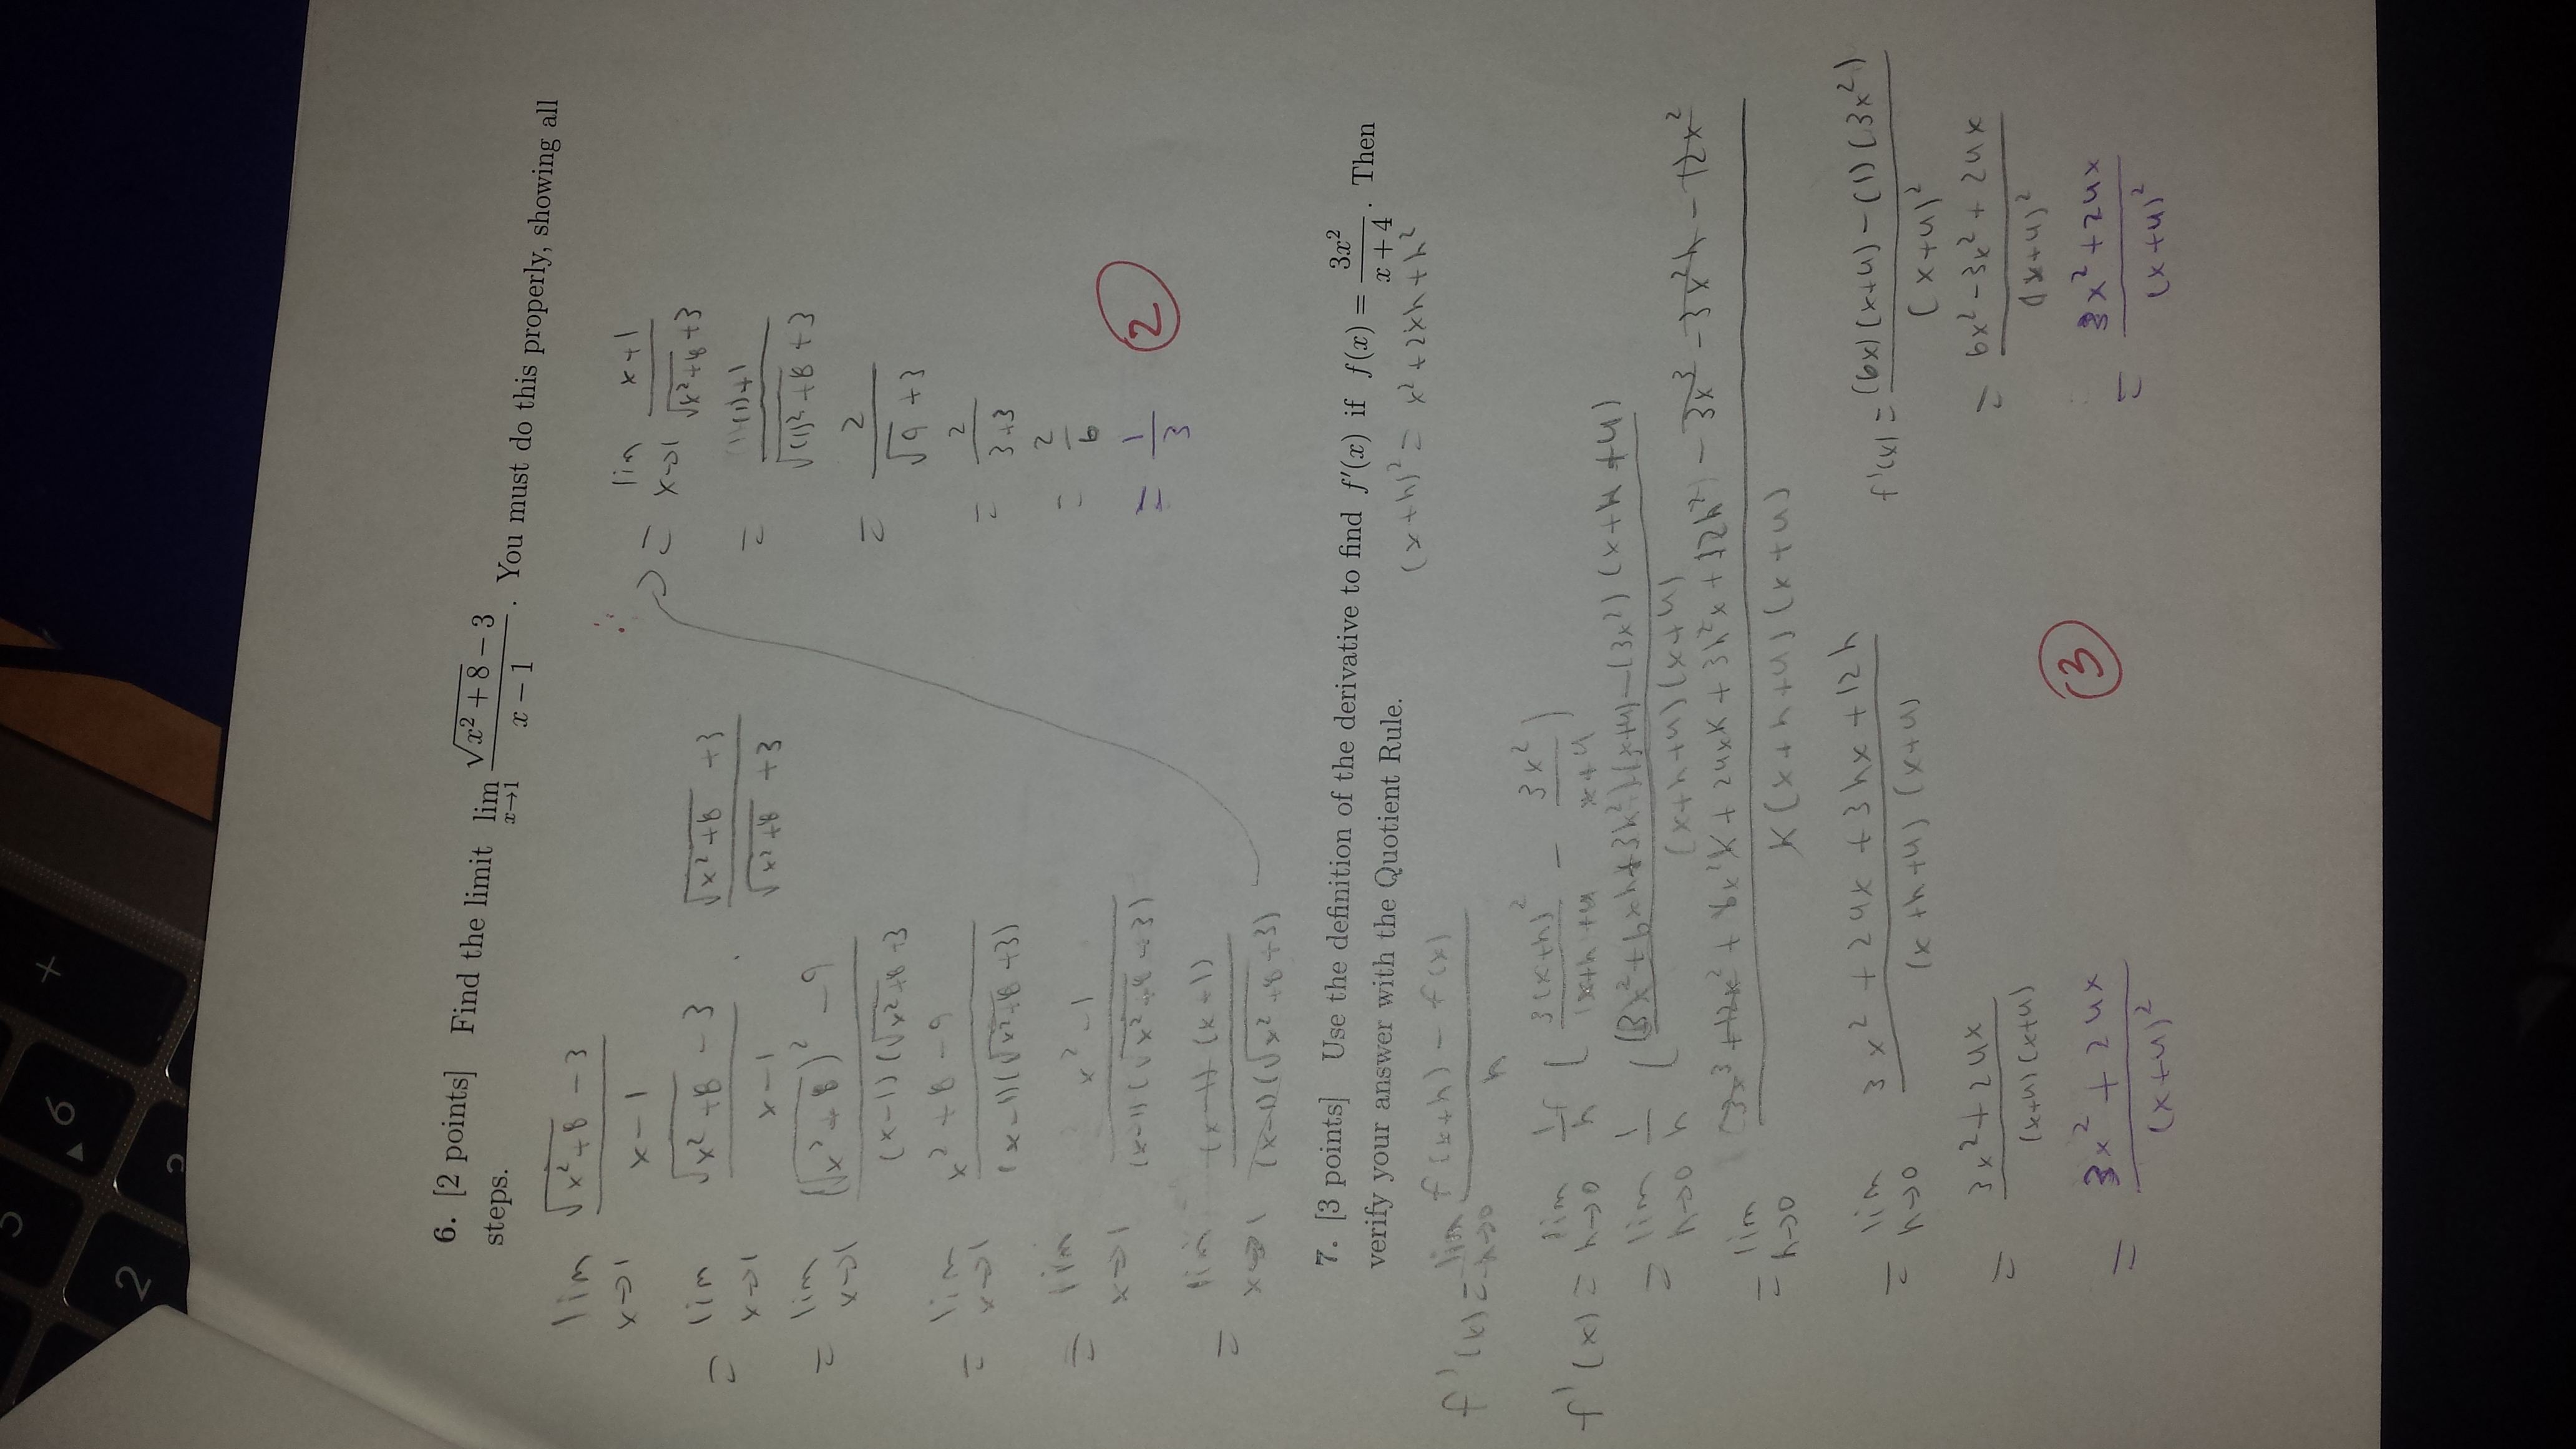 6. [2 points] Find the limit lim x→1 (√(x² + 8) − 3)/(x − 1). You must do this properly, showing all
steps.
lim x→1 (√(x²+8) − 3)/(x − 1)
= lim x→1 (√(x²+8) − 3)/(x − 1) · (√(x²+8) + 3)/(√(x²+8) + 3)
= lim x→1 ((√(x²+8))² − 9)/((x−1)(√(x²+8) + 3
= lim x→1 (x² + 8 − 9)/((x−1)(√(x²+8) + 3))
= lim x→1 (x² − 1)/((x−1)(√(x²+8) + 3))
= lim x→1 ((x−1)(x+1))/((x−1)(√(x²+8) + 3))
= lim x→1 (x+1)/(√(x²+8) + 3)
= ((1)+1)/(√((1)²+8) + 3)
= 2/(√9 + 3)
= 2/(3+3)
= 2/6
= 1/3
2
7. [3 points] Use the definition of the derivative to find f′(x) if f(x) = 3x²/(x + 4). Then
verify your answer with the Quotient Rule.
(x+h)² = x² + 2xh + h²
f'(x) = lim h→0 (f(x+h) − f(x))/h
f'(x) = lim h→0 1/h (3(x+h)²/((x+h)+4) − 3x²/(x+4))
= lim h→0 1/h ((3x²+6xh+3h²)(x+4) − (3x²)(x+h+4)/((x+h+4)(x+4)
= lim h→0 (3x³ + 12x² + 6x²h + 24xh + 3h²x + 12h²) − 3x³ − 3x²h − 12x²/(h(x+h+4)(x+4)
= lim h→0 (3x² + 24x + 3hx + 12h)/((x+h+4)(x+4)
= (3x² + 24x)/((x+4)(x+4)
= (3x² + 24x)/(x+4)²
f'(x) = ((6x)(x+4) − (1)(3x²))/(x+4)²
= (6x² − 3x² + 24x)/(x+4)²
= (3x² + 24x)/(x+4)²
3
+
6
2